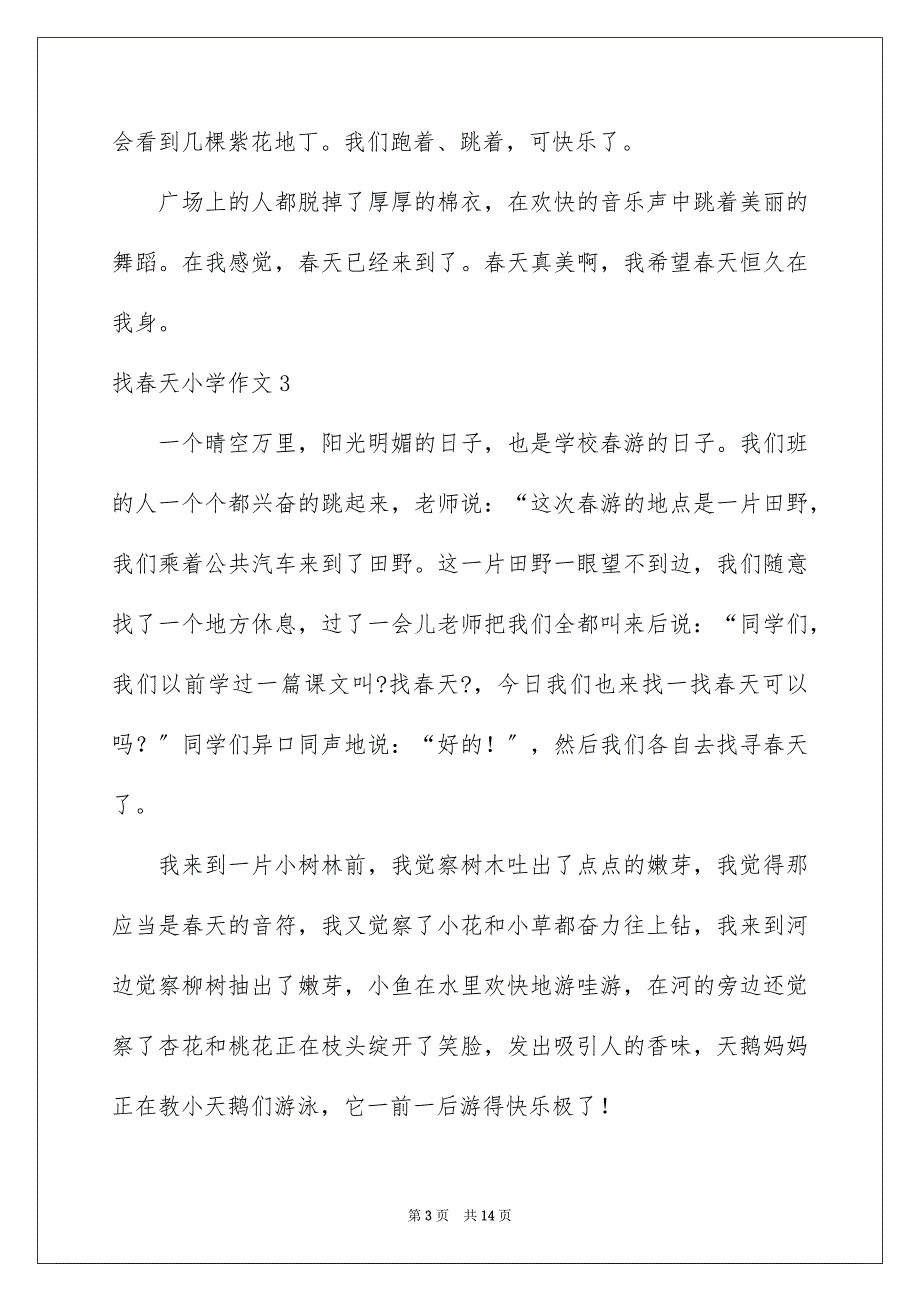 会看到几棵紫花地丁。我们跑着、跳着，可快乐了。
广场上的人都脱掉了厚厚的棉衣，在欢快的音乐声中跳着美丽的
舞蹈。在我感觉，春天已经来到了。春天真美啊，我希望春天恒久在
我身。
找春天小学作文 3
一个晴空万里，阳光明媚的日子，也是学校春游的日子。我们班
的人一个个都兴奋的跳起来，老师说：“这次春游的地点是一片田野，
我们乘着公共汽车来到了田野。这一片田野一眼望不到边，我们随意
找了一个地方休息，过了一会儿老师把我们全都叫来后说：“同学们，
我们以前学过一篇课文叫?找春天?，今日我们也来找一找春天可以
吗？〞同学们异口同声地说：“好的！〞，然后我们各自去找寻春天
了。
我来到一片小树林前，我觉察树木吐出了点点的嫩芽，我觉得那
应当是春天的音符，我又觉察了小花和小草都奋力往上钻，我来到河
边觉察柳树抽出了嫩芽，小鱼在水里欢快地游哇游，在河的旁边还觉
察了杏花和桃花正在枝头绽开了笑脸，发出吸引人的香味，天鹅妈妈
正在教小天鹅们游泳，它一前一后游得快乐极了！
第 3 页 共 14 页